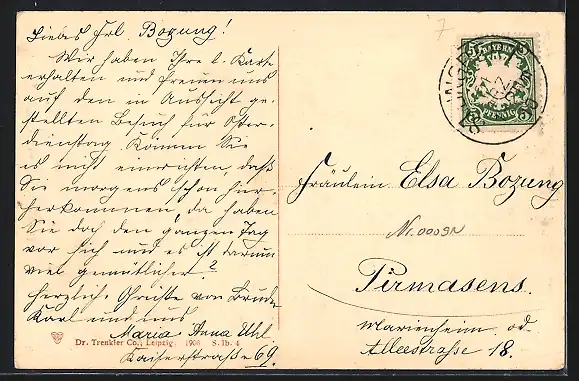 Liebes Frl. Bozung!
Wir haben Ihre l. Karte
erhalten und freuen uns
auf den in Aussicht ge-
stellten Besuch für Oster-
dienstag. Können Sie
es nicht einrichten, daß
Sie morgens schon hier-
herkommen, da haben
Sie doch den ganzen Tag
vor sich und es ist darum
viel gemütlicher?
Herzliche Grüße von Bruder
Karl und uns
Maria Anna Uhl
Kaiserstraße 69.
Dr. Trenkler Co., Leipzig. 1906 S. Ib. 4
7
5 BAYERN 5
5 PFENNIG 5
Fräulein Elsa Bozung
Nr. 0009N
Pirmasens.
Marienheim od.
Alleestrasse 18.